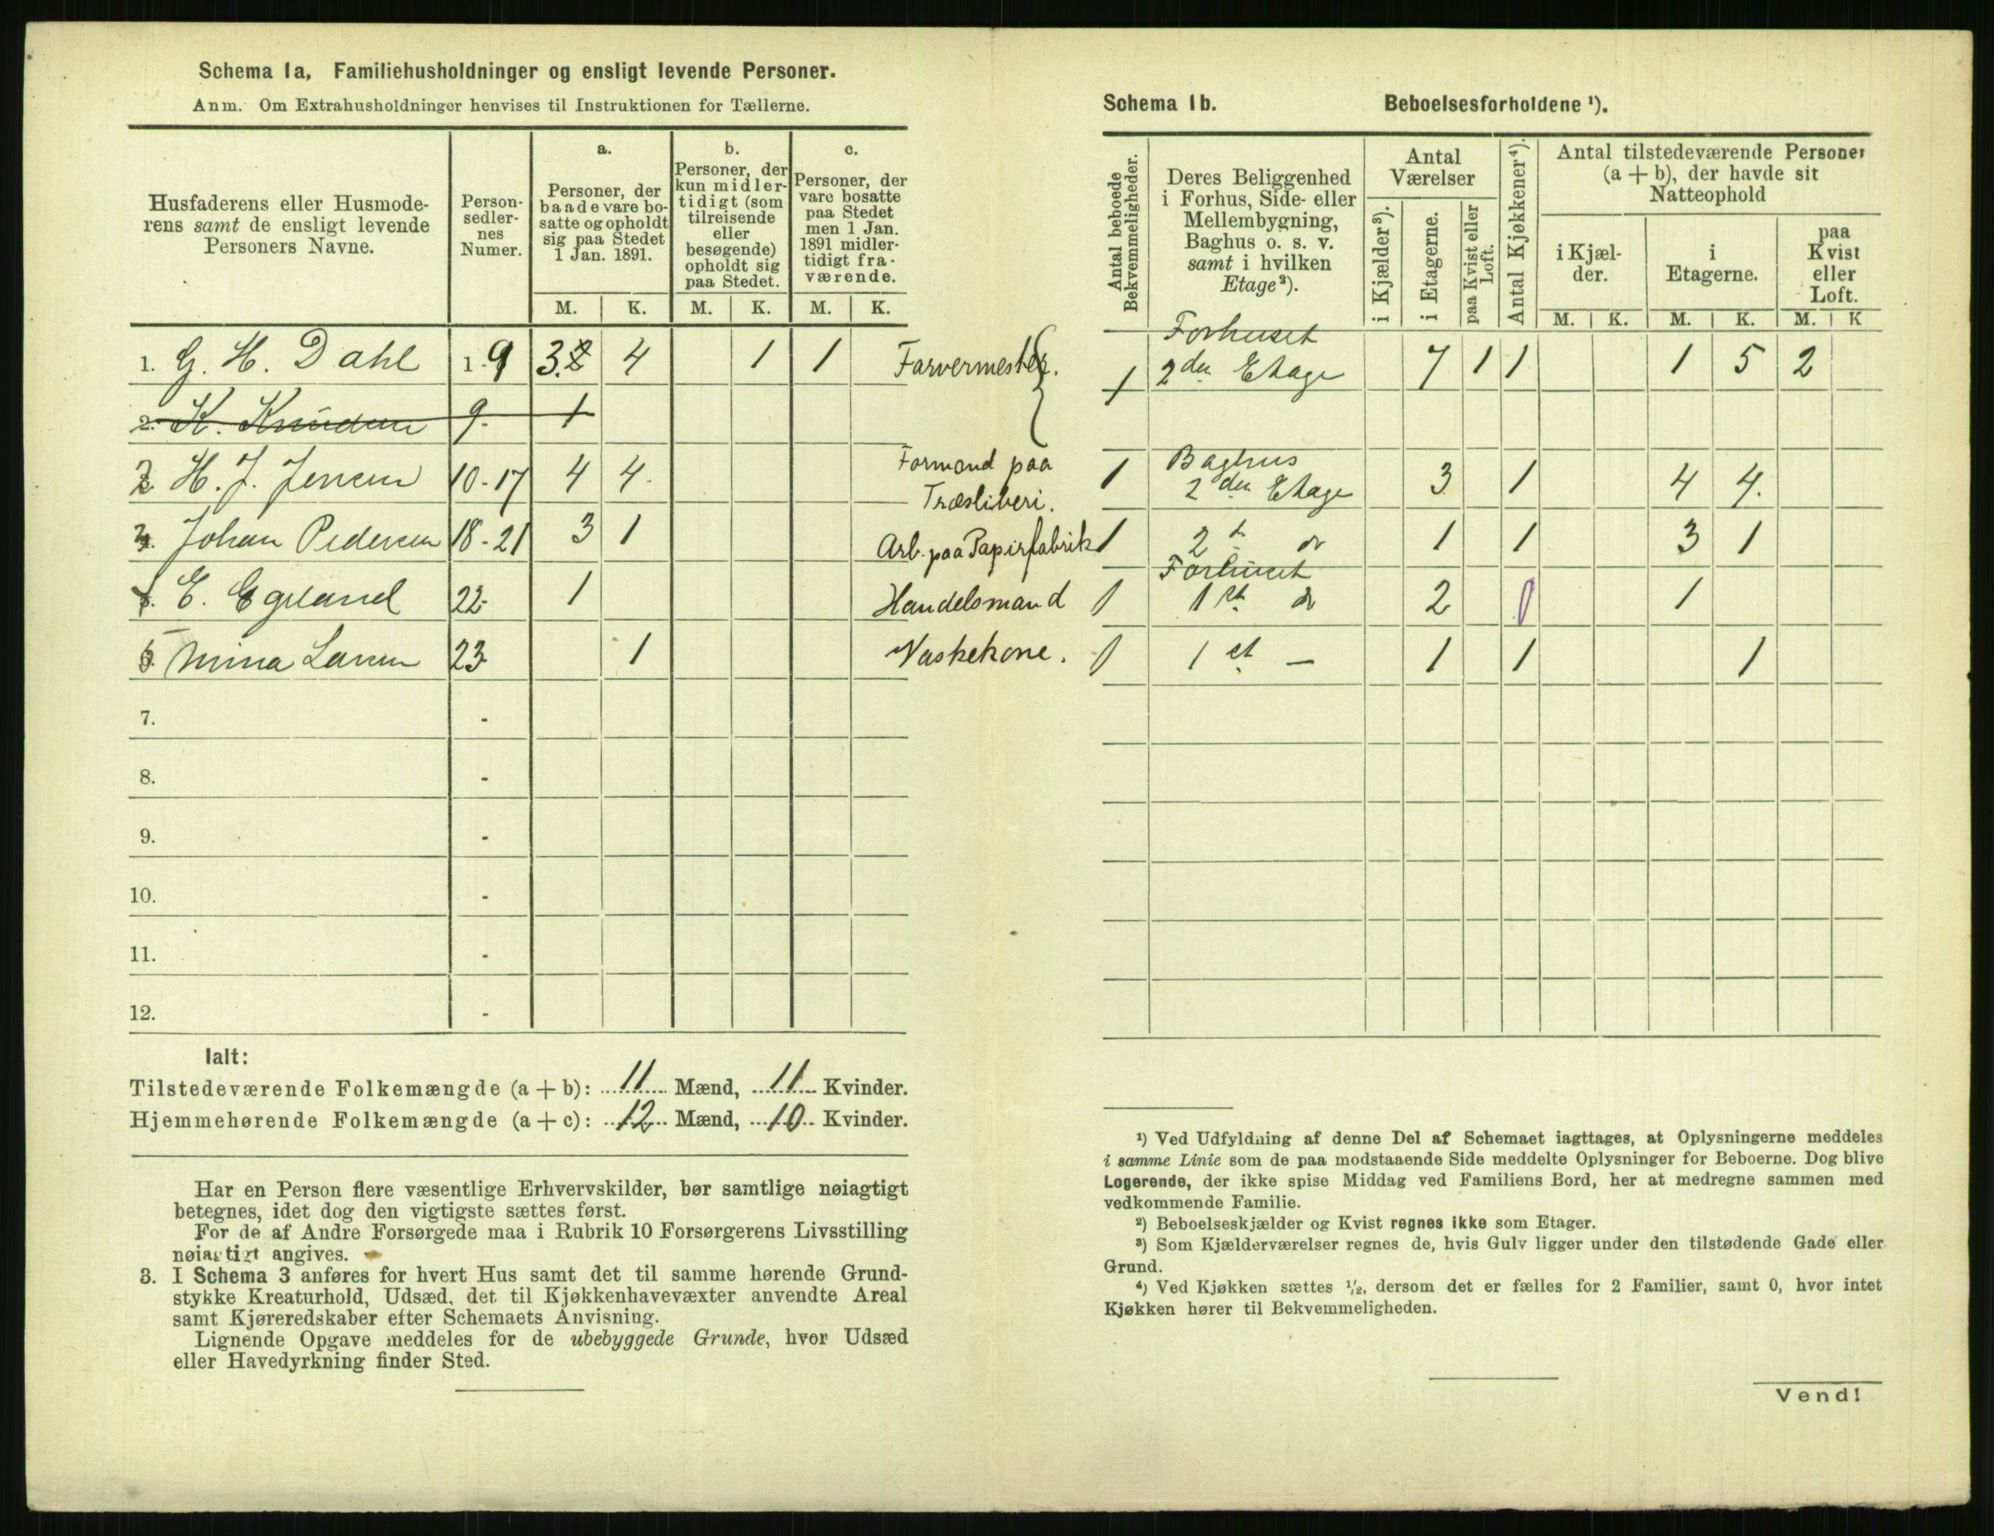 Schema 1a. Familiehusholdninger og ensligt levende Personer.
Anm. Om Extrahusholdninger henvises til Instruktionen for Tællerne.
Husfaderens eller Husmode-
rens samt de ensligt levende
Personers Navne.
Person-
sedler-
nes
Numer.
a.
Personer, der
baade vare bo-
satte og opholdt
sig paa Stedet
1 Jan. 1891.
b.
Personer, der
kun midler-
tidigt (som
tilreisende
eller
besøgende)
opholdt sig
paa Stedet.
c.
Personer, der
vare bosatte
paa Stedet
men 1 Jan.
1891 midler-
tidigt fra-
værende.
M. K. M. K. M. K.
1. G. H. Dahl 1-9 3.2 4 1 1 Farvermester.
2. K. Knudsen 9. 1
2 H. J. Jensen 10-17 4 4. Formand paa
Træsliberi.
3. Johan Pedersen 18-21 3 1 Arb. paa Papirfabrik
4. E. Egeland 22- 1 Handelsmand
5 Mina Larsen 23- 1 Vaskekone.
7. -
8. -
9. -
10. -
11. -
12. -
Ialt:
Tilstedeværende Folkemængde (a + b): 11 Mænd, 11 Kvinder.
Hjemmehørende Folkemængde (a + c): 12 Mænd, 10 Kvinder.
Har en Person flere væsentlige Erhvervskilder, bør samtlige nøiagtigt
betegnes, idet dog den vigtigste sættes først.
For de af Andre Forsørgede maa i Rubrik 10 Forsørgerens Livsstilling
nøiagtigt angives.
3. I Schema 3 anføres for hvert Hus samt det til samme hørende Grund-
stykke Kreaturhold, Udsæd, det til Kjøkkenhavevæxter anvendte Areal
samt Kjøreredskaber efter Schemaets Anvisning.
Lignende Opgave meddeles for de ubebyggede Grunde, hvor Udsæd
eller Havedyrkning finder Sted.
Schema 1b. Beboelsesforholdene ¹).
Antal beboede
Bekvemmeligheder.
Deres Beliggenhed
i Forhus, Side- eller
Mellembygning,
Baghus o. s. v.
samt i hvilken
Etage²).
Antal
Værelser
i Kjælder³).
i Etagerne.
paa Kvist eller
Loft.
Antal Kjøkkener⁴).
Antal tilstedeværende Personer
(a + b), der havde sit
Natteophold
i Kjæl-
der.
i
Etagerne.
paa
Kvist
eller
Loft.
M. K. M. K. M. K
Forhuset
1 2den Etage 7 1 1 1 5 2
Baghus
1 2den Etage 3 1 4 4.
1 2 do 1 1 3 1
Forhuset
1 1st do 2 0 1
1 1st — 1 1 1
¹) Ved Udfyldning af denne Del af Schemaet iagttages, at Oplysningerne meddeles
i samme Linie som de paa modstaaende Side meddelte Oplysninger for Beboerne. Dog blive
Logerende, der ikke spise Middag ved Familiens Bord, her at medregne sammen med
vedkommende Familie.
²) Beboelseskjælder og Kvist regnes ikke som Etager.
³) Som Kjælderværelser regnes de, hvis Gulv ligger under den tilstødende Gade eller
Grund.
⁴) Ved Kjøkken sættes ½, dersom det er fælles for 2 Familier, samt 0, hvor intet
Kjøkken hører til Bekvemmeligheden.
Vend!